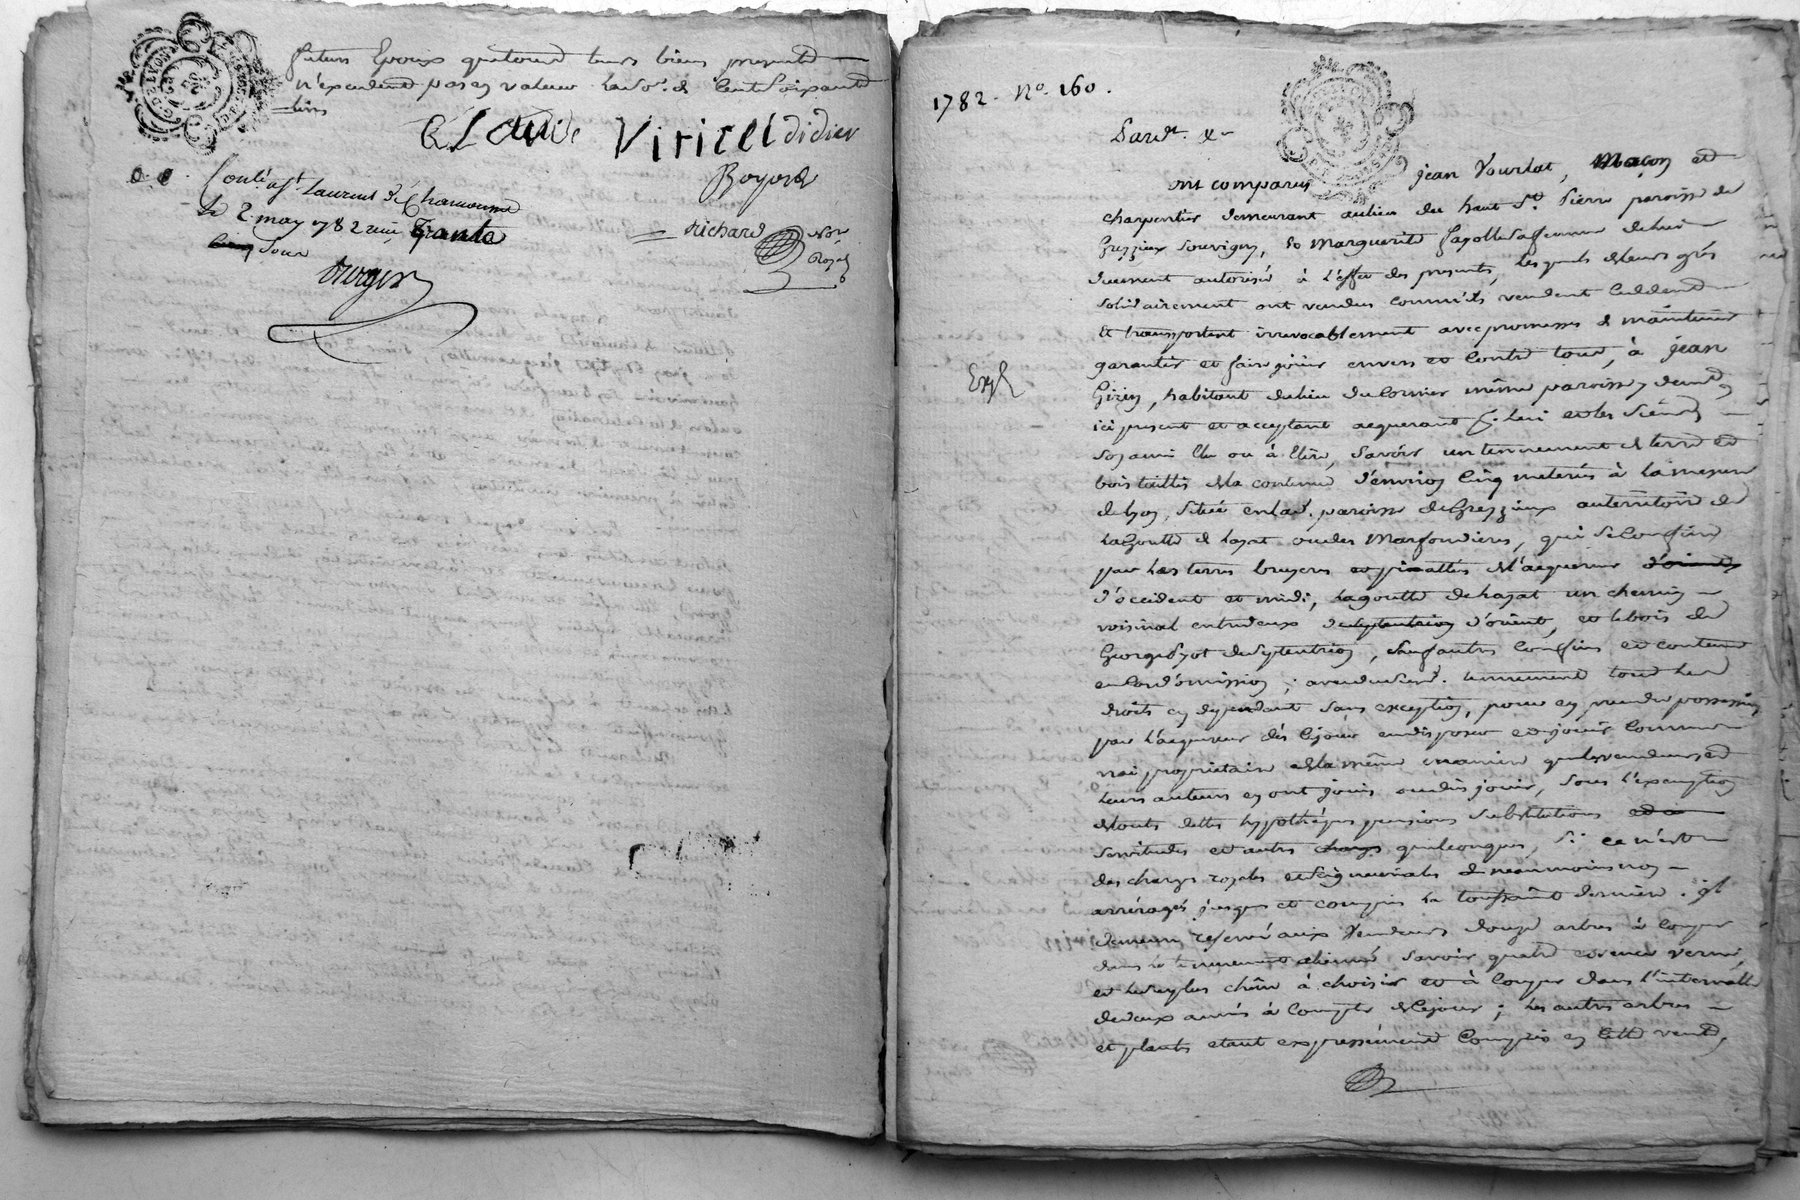 futurs Epoux quatorend leurs biens presents
n'excedent pas en valeur la so. de Cent Soixante
livres
Claude Viricel didier
Boyord
richard Nore
Royal
Contr. à St. Laurent de Chamousset
le 2 may 1782 reçu trente
Sous
1782. No. 160.
Pardt. &
ont comparus jean Vourlat, Maçon et
charpentier demeurant au lieu du haut St. Pierre paroisse de
Grezzieux Souvigny, & Marguerite sa femme de lui
duement autorisée à l'effet des presents, lesquels de leurs grés
solidairement ont vendus comm'ils vendent cedent
et transportent irrevocablement avec promesses de maintenir
garantir et faire jöuir envers et contre tous, à jean
Expé
habitant du lieu du Cornier même paroisse,
ici present et acceptant acquerant pr. lui et les Siens
Son ami Elu ou à Elire, Savoir un tennement de terre et
bois taillis de la contenue d'environ Cinq meterées à la mesure
de Lyon, Située en lad. paroisse de Grezzieux au territoire de
la Goutte de hazat ou des Marfondieres, qui Se Confine
par les terres bruyeres et pinattées de l'acquereur
d'occident et midi, la goutte de hazat un chemin
voisinal entredeux d'orient, et le bois de
George du Septentrion, Sauf autres Confins et contenue
en Cas d'omission; avec dud. tennement tous les
droits en dependant Sans exception, pour en prendre possession
par l'acquereur dès Ce jour en disposer et jouir Comme
vrai proprietaire de la même maniere que les vendeurs et
leurs auteurs en ont joui ou dû jouir, Sous l'exemption
de touts dettes hypotheques pensions Substitutions
Servitudes et autres charges quelconques, Si ce n'est
des charges royales et Seigneuriales & neanmoins non
arréragés jusques et compris la toussaint derniere. il
demeure reservé aux Vendeurs douze arbres à Couper
dans le tennement aliené Savoir quatre essence verne,
et le surplus chêne à choisir et à Couper dans l'intervalle
de deux années à Compter de Ce jour; les autres arbres
et plants etant expressément Compris en Cette vente,